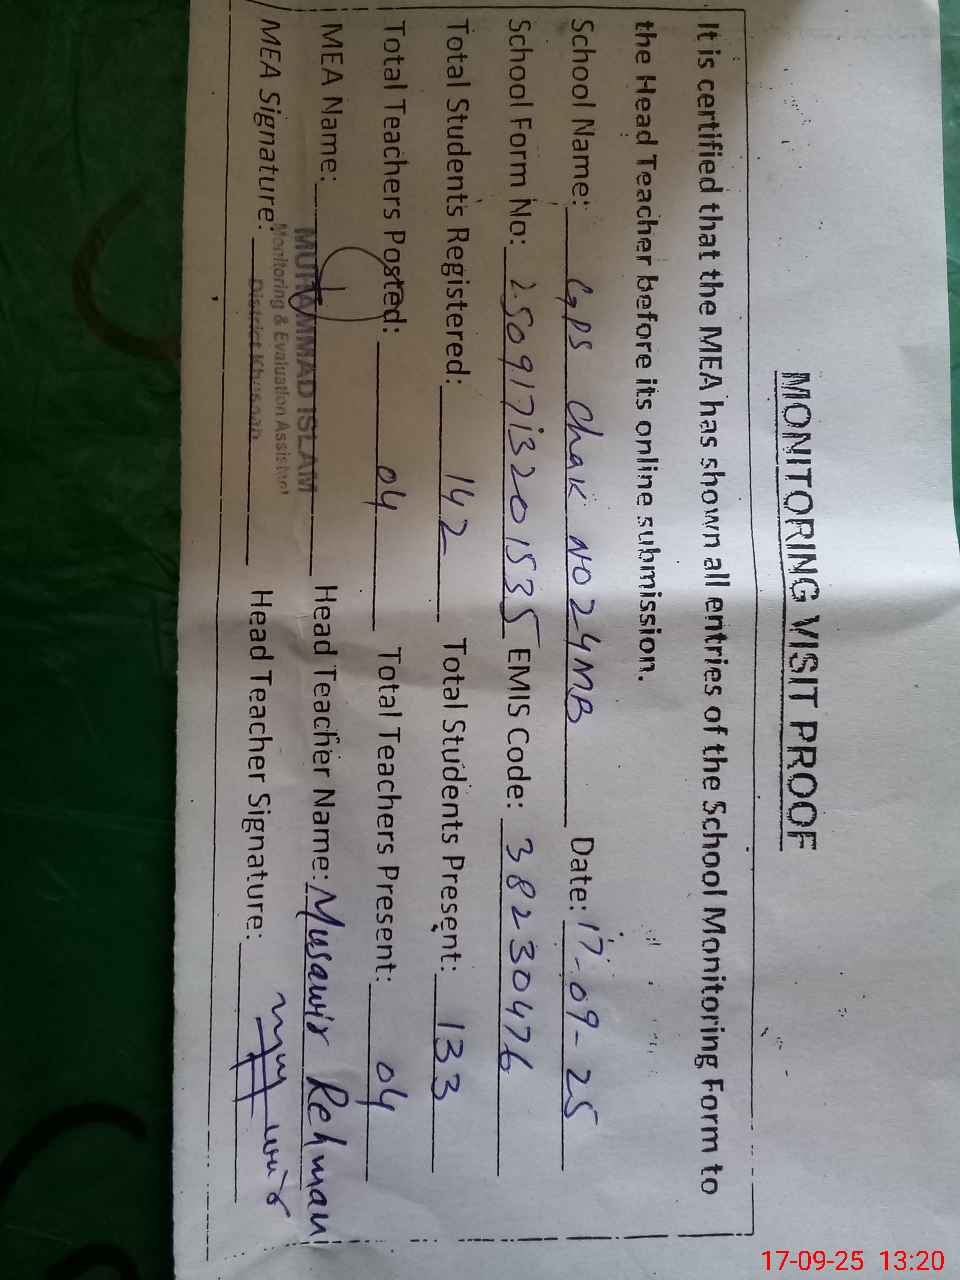 MONITORING VISIT PROOF
It is certified that the MEA has shown all entries of the School Monitoring Form to
the Head Teacher before its online submission.
School Name: GPS Chak NO 24MB Date: 17-09-25
School Form No: 25091713201535 EMIS Code: 38230476
Total Students Registered: 142 Total Students Present: 133
Total Teachers Posted: 04 Total Teachers Present: 04
MEA Name: MUHAMMAD ISLAM Head Teacher Name: Musawir Rehman
Monitoring & Evaluation Assistant
District Khushab
MEA Signature: Head Teacher Signature:
17-09-25 13:20